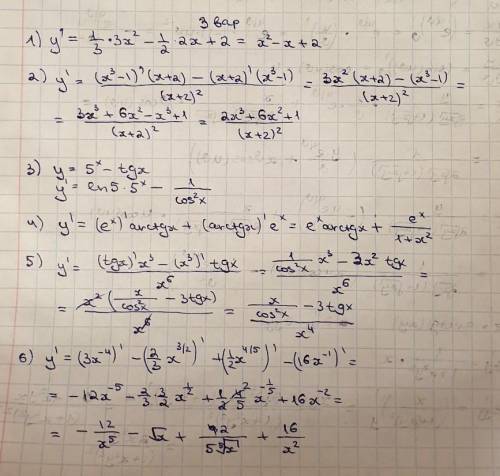 3 вар
1) y' = 1/3 · 3x² - 1/2 · 2x + 2 = x² - x + 2
2) y' = ((x³-1)'(x+2) - (x+2)'(x³-1))/(x+2)² = (3x²(x+2) - (x³-1))/(x+2)² =
= (3x³ + 6x² - x³ + 1)/(x+2)² = (2x³ + 6x² + 1)/(x+2)²
3) y = 5ˣ - tgx
y' = ln5 · 5ˣ - 1/cos²x
4) y' = (eˣ)' arctgx + (arctgx)' eˣ = eˣ arctgx + eˣ/(1+x²)
5) y' = ((tgx)'x³ - (x³)' tgx)/x⁶ = (1/cos²x x³ - 3x² tgx)/x⁶ =
= x²(x/cos²x - 3tgx)/x⁶ = (x/cos²x - 3tgx)/x⁴
6) y' = (3x⁻⁴)' - (2/3 x^(3/2))' + (1/2 x^(4/5))' - (16x⁻¹)' =
= -12x⁻⁵ - 2/3 · 3/2 x^(1/2) + 1/2 · 4/5 x^(-1/5) + 16x⁻² =
= -12/x⁵ - √x + 2/(5 ⁵√x) + 16/x²